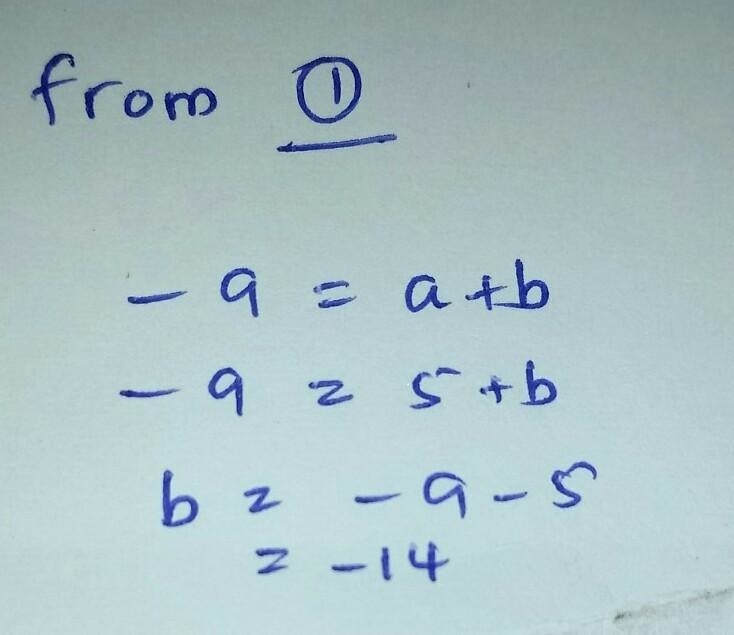 from ①
- 9 = a + b
- 9 = 5 + b
b = - 9 - 5
= - 14